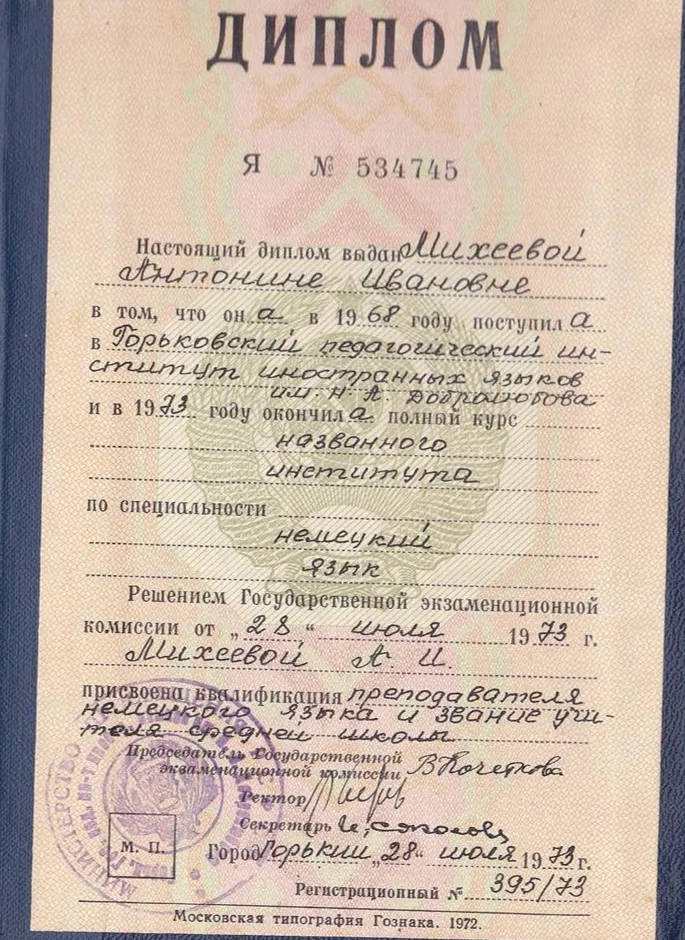 ДИПЛОМ
Я № 534745
Настоящий диплом выдан Михеевой
Антонине Ивановне
в том, что он а в 1968 году поступил а
в Горьковский педагогический ин-
ститут иностранных языков
им. Н. А. Добролюбова
и в 1973 году окончил а полный курс
названного
института
по специальности
немецкий
язык
Решением Государственной экзаменационной
комиссии от „28“ июля 1973 г.
Михеевой А. И.
присвоена квалификация преподавателя
немецкого языка и звание учи-
теля средней школы
Председатель Государственной
экзаменационной комиссии В Кочеткова
Ректор
Секретарь
М. П.
Город Горький „28“ июля 1973 г.
Регистрационный № 395/73
Московская типография Гознака. 1972.
МИНИСТЕРСТВО